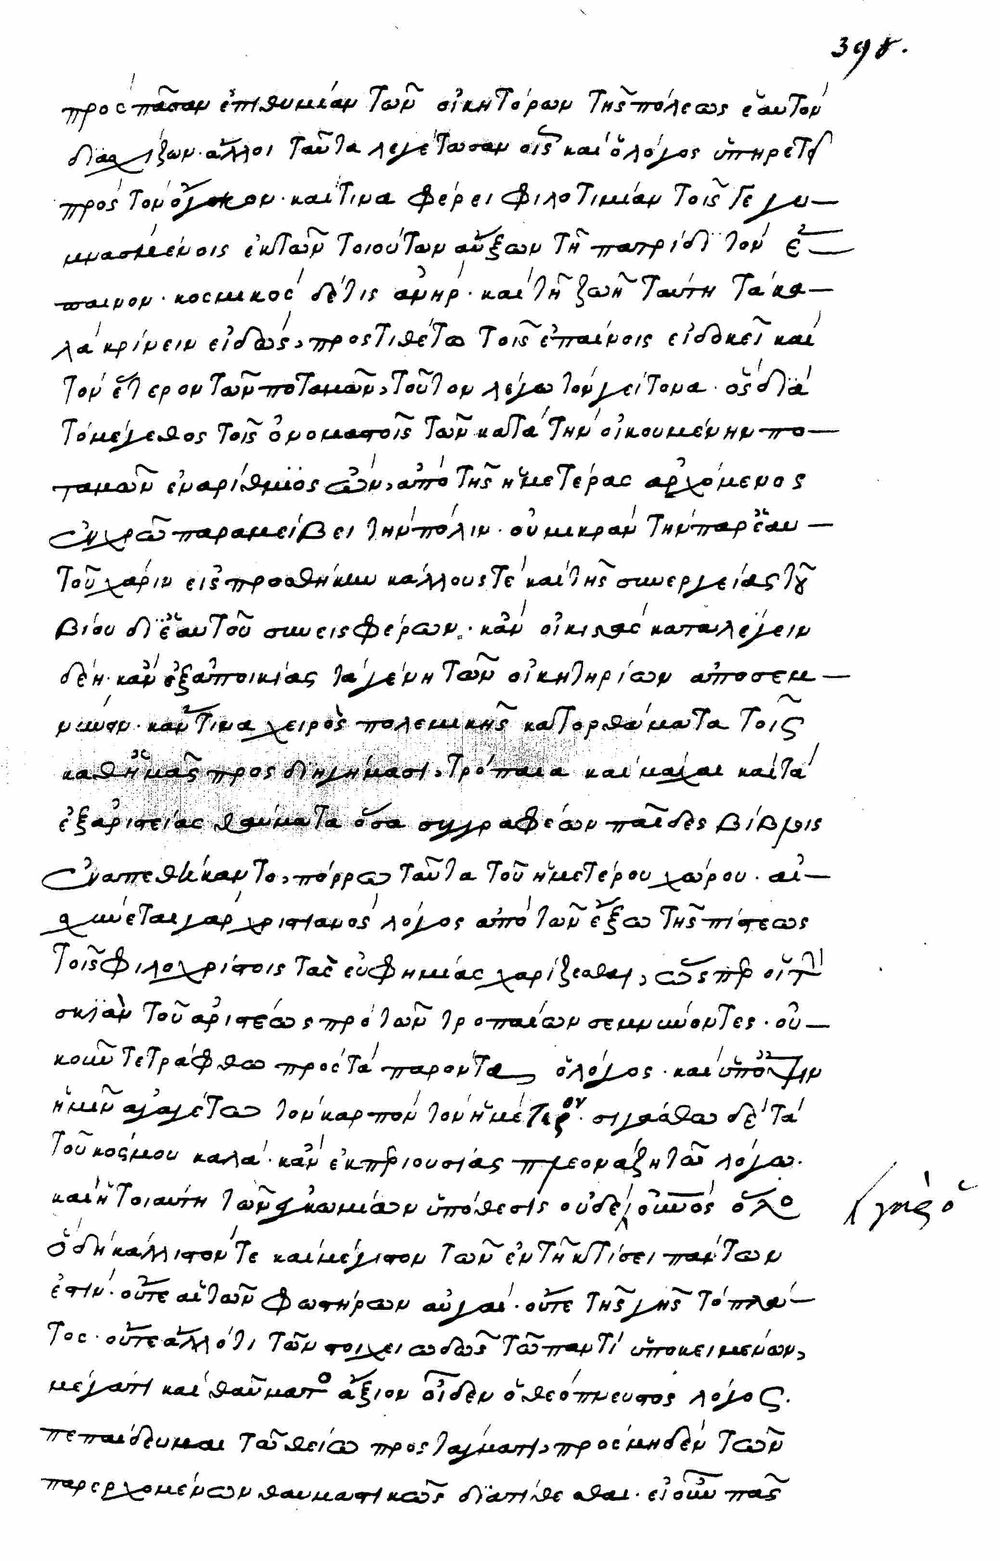 398.
πρὸς πᾶσαν ἐπιθυμίαν τῶν οἰκητόρων τῆς πόλεως ἑαυτὸν
δια σχίζων· ἄλλοι ταῦτα λεγέτωσαν οἷς καὶ ὁ λόγος ὑπηρετεῖ
πρὸς τὸν ὄγκον· καί τινα φέρει φιλοτιμίαν τοῖς γεγυ-
μνασμένοις ἐκ τῶν τοιούτων αὔξων τῇ πατρίδι τὸν ἔ-
παινον· κοσμικὸς δέ τις ἀνὴρ· καὶ τῇ ζωῇ ταύτῃ τὰ κα-
λὰ κρίνειν εἰδὼς, προστιθέτω τοῖς ἐπαίνοις εἰ δοκεῖ καὶ
τὸν ἕτερον τῶν ποταμῶν, τοῦτον λέγω τὸν γείτονα· ὃς διὰ
τὸ μέγεθος τοῖς ὀνομαστοῖς τῶν κατὰ τὴν οἰκουμένην πο-
ταμῶν ἐναρίθμιος ὢν, ἀπὸ τῆς ἡμετέρας ἀρχόμενος
ἐν χρῷ παραμείβει τὴν πόλιν· οὐ μικρὰν τὴν παρ' ἑαυ-
τοῦ χάριν εἰς προσθήκην κάλλους τὲ καὶ τῆς συνεργείας τοῦ
βίου δι' ἑαυτοῦ συνεισφέρων· κἂν οἰκιστὰς καταλέγειν
δέῃ· κἂν ἐξ ἀποικίας τὰ γένη τῶν οἰκητηρίων ἀποσεμ-
νύνειν· κἄν τινα χειρὸς πολεμικῆς κατορθώματα τοῖς
καθ' ἡμᾶς προς διηγήμασι, τρόπαια καὶ μάχαι καὶ τὰ
ἐξ ἀριστείας θαύματα ὅσα συγγραφέων παῖδες βίβλοις
ἐναπεθήκαντο, πόρρω ταῦτα τοῦ ἡμετέρου χώρου· αἰ-
σχύνεται γὰρ χριστιανὸς λόγος ἀπὸ τῶν ἔξω τῆς πίστεως
τοῖς φιλοχρίστοις τὰς εὐφημίας χαρίζεσθαι, ὥσπερ οἱ τὴν
σκιὰν τοῦ ἀριστέως πρὸ τῶν τροπαίων σεμνύνοντες· οὐ-
κοῦν τετράφθω προς τὰ παρόντα ὁ λόγος· καὶ ὑπ' ὄψιν
ἡμῖν ἀγαγέτω τὸν καρπὸν τὸν ἡμέτερον· σιγάσθω δὲ τὰ
τοῦ κόσμου καλὰ· κἂν ἐκ περιουσίας πλεονάζῃ τῷ λόγῳ·
καὶ ἡ τοιαύτη τῶν ἐγκωμίων ὑπόθεσις οὐδὲ οὐρανὸς ὅλος
ὃ δὴ κάλλιστόν τε καὶ μέγιστον τῶν ἐν τῇ κτίσει πάντων
ἐστίν· οὔτε αἱ τῶν φωστήρων αὐγαὶ· οὔτε τῆς γῆς τὸ πλά-
τος· οὔτε ἄλλό τι τῶν στοιχειωδῶς τῷ παντὶ ὑποκειμένων,
μέγα τι καὶ θαύματος ἄξιον οἶδεν ὁ θεόπνευστος λόγος.
πεπαίδευμαι τῷ θείῳ προστάγματι, προς μηδὲν τῶν
παρερχομένων θαυμαστικῶς διατίθεσθαι· εἰ οὖν πᾶς